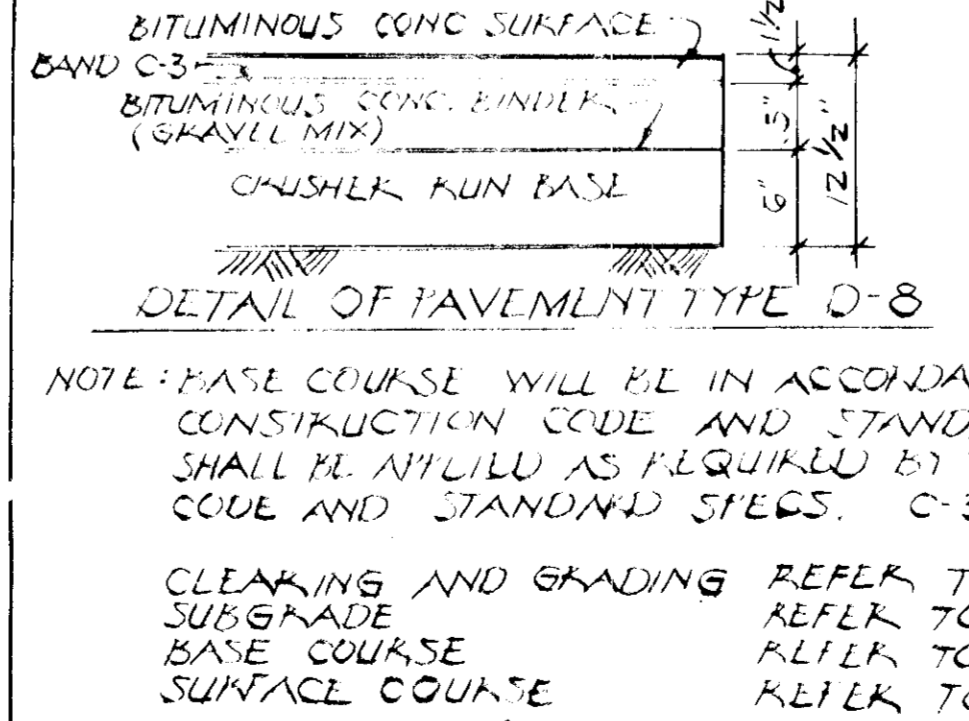 BITUMINOUS CONC SURFACE
BAND C-3
BITUMINOUS CONC. BINDER
(GRAVEL MIX)
CRUSHER RUN BASE
1½
5"
6"
12½"
DETAIL OF PAVEMENT TYPE D-8
NOTE: BASE COURSE WILL BE IN ACCORDA
CONSTRUCTION CODE AND STAND
SHALL BE APPLIED AS REQUIRED BY
CODE AND STANDARD SPECS. C-3
CLEARING AND GRADING REFER T
SUBGRADE REFER TO
BASE COURSE REFER TO
SURFACE COURSE REFER TO